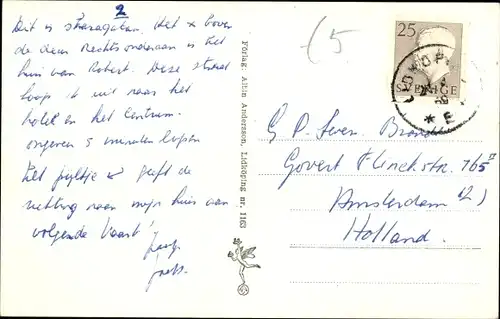 2
Dit is Skaragatan. Het x boven
de deur rechts onderaan is het
huis van Robert. Deze straat
loop ik uit naar het
hotel en het centrum.
ongeveer 5 minuten lopen
Het pijltje geeft de
richting naar mijn huis aan.
volgende kaart!
Förlag Albin Andersson, Lidköping nr. 1163
5
25
SVERIGE
G P. Seven
Govert Flinckstr. 165 II
Amsterdam (Z)
Holland.